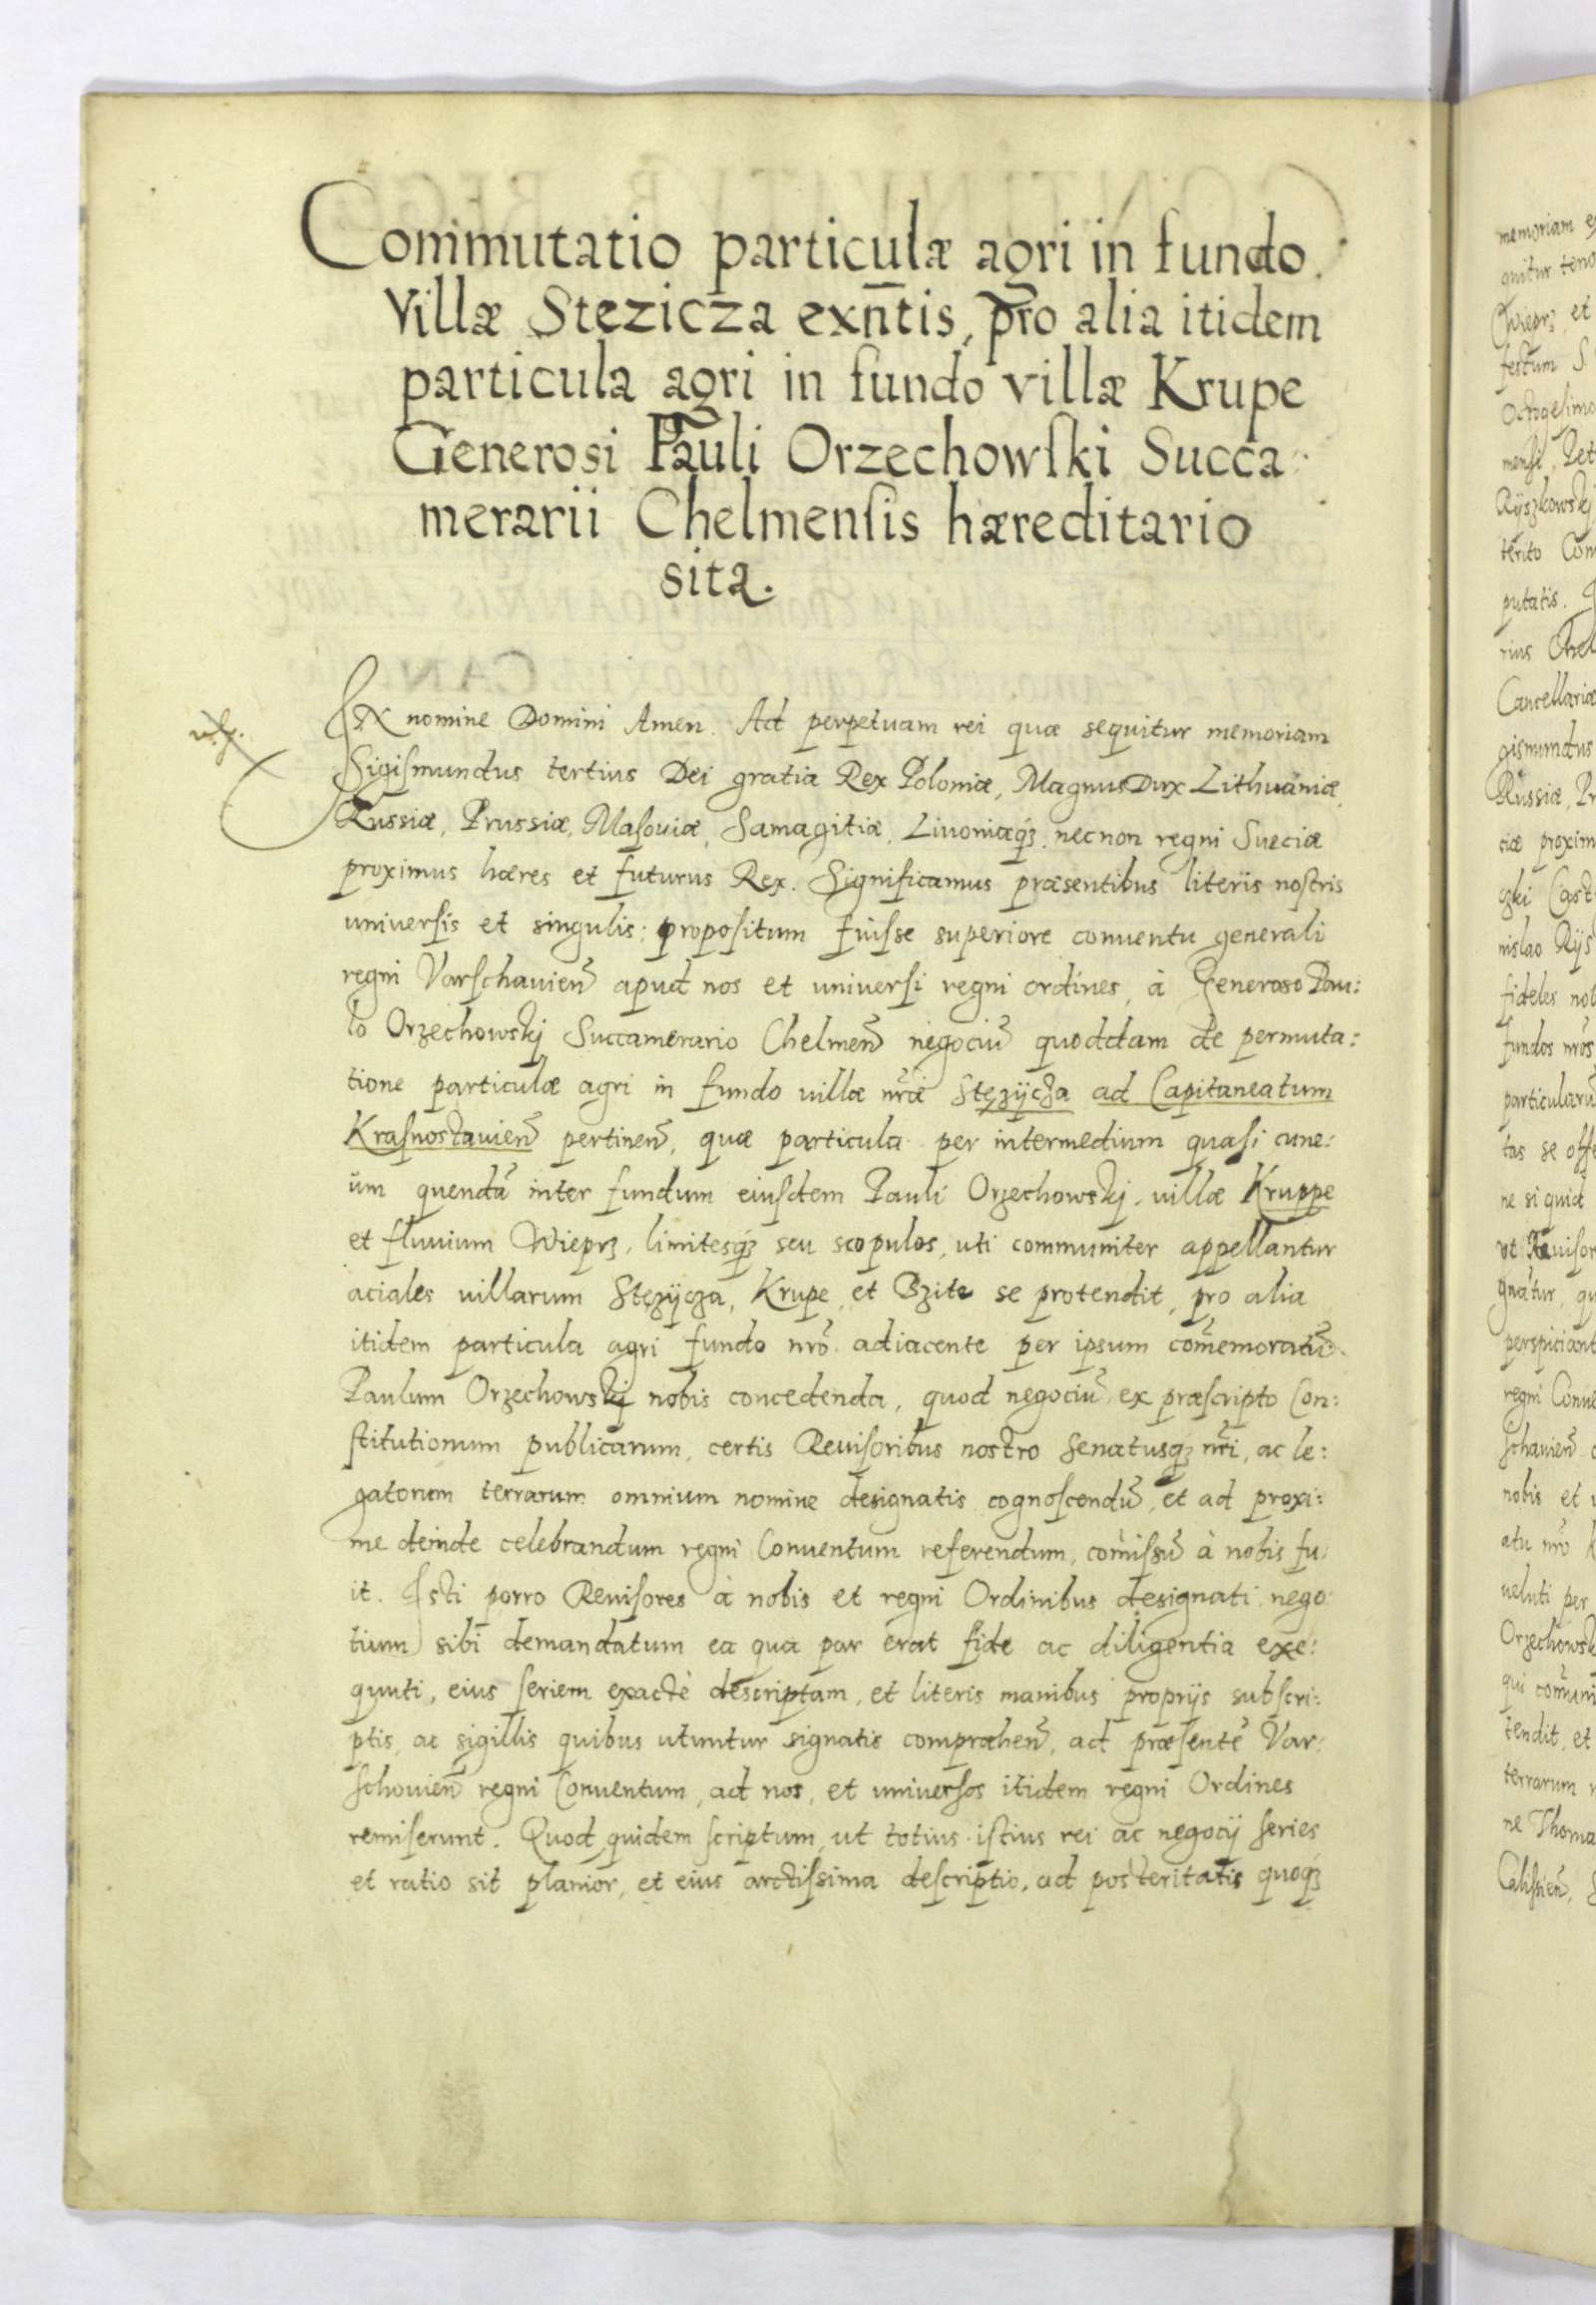 Commutatio particulæ agri in fundo
Villæ Stezicza exn̄tis, pro alia itidem
particula agri in fundo villæ Krupe
Generosi Pauli Orzechowſki Succa
merarii Chelmenſis hæreditario
sita.
IN nomine Domini Amen. Ad perpetuam rei quæ sequitur memoriam
Sigiſmundus tertius Dei gratia Rex Poloniæ, Magnus Dux Lithuaniæ,
Russiæ, Prussiæ, Maſouiæ, Samagitiæ, Liuoniæq́ꝫ necnon regni Sueciæ
proximus hæres et futurus Rex. Significamus præsentibus literis nostris
universis et singulis: propositum fuiſse superiore conventu generali
regni Varſchauien̄ apud nos et universi regni ordines, à Generoso Pau:
lo Orzechowskj Succamerario Chelmen̄ negociū quoddam de permuta:
tione particulæ agri in fundo villæ nr̄æ Stęzÿcza ad Capitaneatum
Kraſnostauien̄ pertinen̄, quæ particula per intermedium quaſi cune:
um quendā inter fundum eiuſdem Pauli Orzechowskj villæ Kruppe
et fluuium Wieprz, limitesq́ꝫ seu scopulos, uti communiter appellantur
aciales villarum Stęzÿcza, Krupe, et Bzite se protendit, pro alia
itidem particula agri fundo nr̄o adiacente per ipsum com̄emoratū
Paulum Orzechowskj nobis concedenda, quod negociū ex præſcripto Con:
ſtitutionum publicarum, certis Reuiſoribus nostro Senatusq́ꝫ nr̄i, ac le:
gatorum terrarum omnium nomine designatis cognoſcendū, et ad proxi:
me deinde celebrandum regni Conuentum referendum, com̄iſsū à nobis fu:
it. Iſti porro Reuiſores à nobis et regni Ordinibus designati nego
tium sibi demandatum ea qua par erat fide ac diligentia exe:
quuti, eius ſeriem exactè descriptam, et literis manibus proprijs subſcri:
ptis, ac sigillis quibus utuntur signatis compræhen̄, ad præſentē Var:
ſchouien̄ regni Conuentum, ad nos, et uniuerſos itidem regni Ordines
remiſerunt. Quod quidem ſcriptum, ut totius iſtius rei ac negocij ſeries
et ratio sit planior, et eius arctiſsima deſcriptio, ad posteritatis quoq́ꝫ